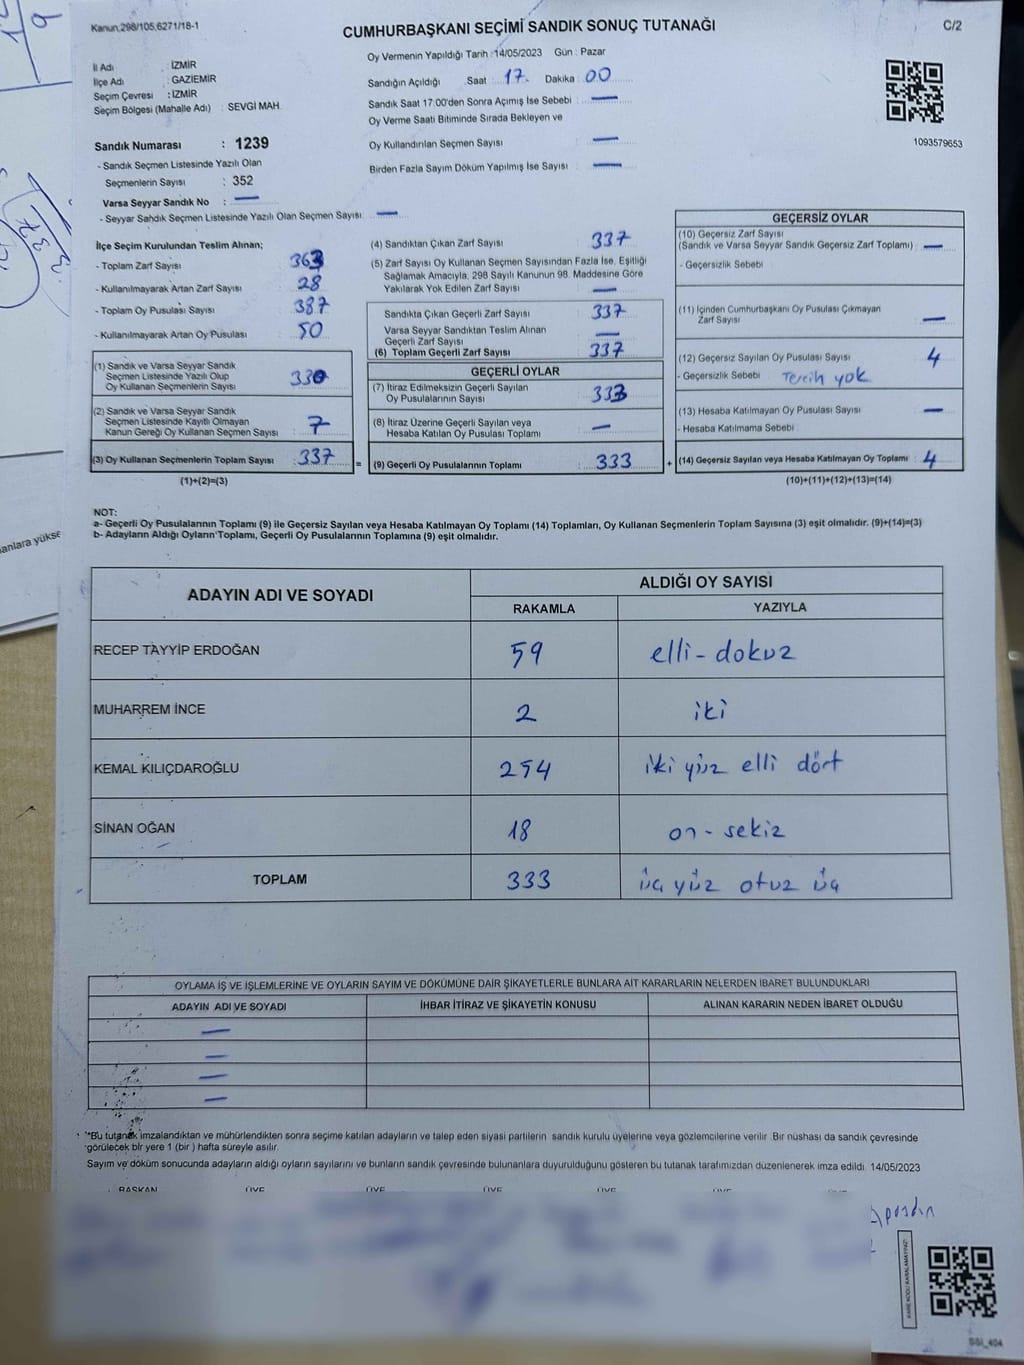 Kanun,298/105,6271/18-1
CUMHURBAŞKANI SEÇİMİ SANDIK SONUÇ TUTANAĞI
C/2
Oy Vermenin Yapıldığı Tarih :14/05/2023 Gün : Pazar
İl Adı : İZMİR
İlçe Adı : GAZİEMİR
Seçim Çevresi : İZMİR
Seçim Bölgesi (Mahalle Adı) : SEVGİ MAH.
Sandığın Açıldığı Saat : 17. Dakika : 00
Sandık Saat 17:00'den Sonra Açımış İse Sebebi : —
Oy Verme Saati Bitiminde Sırada Bekleyen ve
Oy Kullandırılan Seçmen Sayısı : —
Birden Fazla Sayım Döküm Yapılmış İse Sayısı : —
1093579653
Sandık Numarası : 1239
- Sandık Seçmen Listesinde Yazılı Olan
Seçmenlerin Sayısı : 352
Varsa Seyyar Sandık No : —
- Seyyar Sandık Seçmen Listesinde Yazılı Olan Seçmen Sayısı: —
İlçe Seçim Kurulundan Teslim Alınan;
- Toplam Zarf Sayısı : 363
- Kullanılmayarak Artan Zarf Sayısı : 28
- Toplam Oy Pusulası Sayısı : 387
- Kullanılmayarak Artan Oy Pusulası : 50
(1) Sandık ve Varsa Seyyar Sandık
Seçmen Listesinde Yazılı Olup
Oy Kullanan Seçmenlerin Sayısı : 330
(2) Sandık ve Varsa Seyyar Sandık
Seçmen Listesinde Kayıtlı Olmayan
Kanun Gereği Oy Kullanan Seçmen Sayısı : 7
(3) Oy Kullanan Seçmenlerin Toplam Sayısı : 337
(1)+(2)=(3)
(4) Sandıktan Çıkan Zarf Sayısı : 337
(5) Zarf Sayısı Oy Kullanan Seçmen Sayısından Fazla İse, Eşitliği
Sağlamak Amacıyla, 298 Sayılı Kanunun 98. Maddesine Göre
Yakılarak Yok Edilen Zarf Sayısı : —
Sandıkta Çıkan Geçerli Zarf Sayısı : 337
Varsa Seyyar Sandıktan Teslim Alınan
Geçerli Zarf Sayısı : —
(6) Toplam Geçerli Zarf Sayısı : 337
GEÇERLİ OYLAR
(7) İtiraz Edilmeksizin Geçerli Sayılan
Oy Pusulalarının Sayısı : 333
(8) İtiraz Üzerine Geçerli Sayılan veya
Hesaba Katılan Oy Pusulası Toplamı : —
= (9) Geçerli Oy Pusulalarının Toplamı : 333 +
GEÇERSİZ OYLAR
(10) Geçersiz Zarf Sayısı
(Sandık ve Varsa Seyyar Sandık Geçersiz Zarf Toplamı) : —
- Geçersizlik Sebebi
(11) İçinden Cumhurbaşkanı Oy Pusulası Çıkmayan
Zarf Sayısı : —
(12) Geçersiz Sayılan Oy Pusulası Sayısı : 4
- Geçersizlik Sebebi Tercih yok
(13) Hesaba Katılmayan Oy Pusulası Sayısı : —
- Hesaba Katılmama Sebebi
(14) Geçersiz Sayılan veya Hesaba Katılmayan Oy Toplamı : 4
(10)+(11)+(12)+(13)=(14)
NOT:
a- Geçerli Oy Pusulalarının Toplamı (9) ile Geçersiz Sayılan veya Hesaba Katılmayan Oy Toplamı (14) Toplamları, Oy Kullanan Seçmenlerin Toplam Sayısına (3) eşit olmalıdır. (9)+(14)=(3)
b- Adayların Aldığı Oyların Toplamı, Geçerli Oy Pusulalarının Toplamına (9) eşit olmalıdır.
anlara yükse
ADAYIN ADI VE SOYADI ALDIĞI OY SAYISI
RAKAMLA YAZIYLA
RECEP TAYYİP ERDOĞAN 59 elli-dokuz
MUHARREM İNCE 2 iki
KEMAL KILIÇDAROĞLU 254 iki yüz elli dört
SİNAN OĞAN 18 on-sekiz
TOPLAM 333 üç yüz otuz üç
OYLAMA İŞ VE İŞLEMLERİNE VE OYLARIN SAYIM VE DÖKÜMÜNE DAİR ŞİKAYETLERLE BUNLARA AİT KARARLARIN NELERDEN İBARET BULUNDUKLARI
ADAYIN ADI VE SOYADI İHBAR İTİRAZ VE ŞİKAYETİN KONUSU ALINAN KARARIN NEDEN İBARET OLDUĞU
—
—
—
—
"Bu tutanak imzalandıktan ve mühürlendikten sonra seçime katılan adayların ve talep eden siyasi partilerin sandık kurulu üyelerine veya gözlemcilerine verilir .Bir nüshası da sandık çevresinde
görülecek bir yere 1 (bir ) hafta süreyle asılır.
Sayım ve döküm sonucunda adayların aldığı oyların sayılarını ve bunların sandık çevresinde bulunanlara duyurulduğunu gösteren bu tutanak tarafımızdan düzenlenerek imza edildi. 14/05/2023
BAŞKAN ÜYE ÜYE ÜYE ÜYE ÜYE ÜYE
KARE KODU KARALAMAYINIZ!
SSI_404